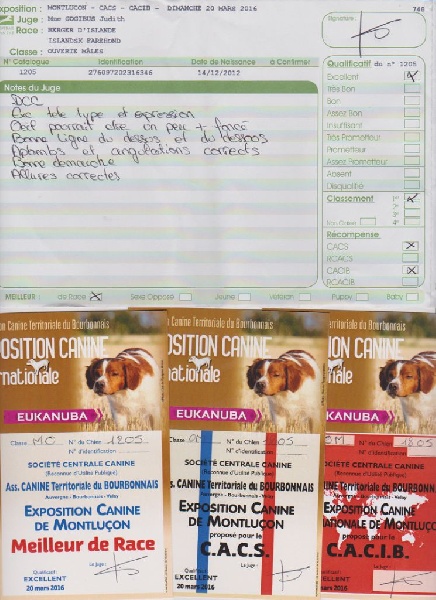 Exposition : MONTLUCON - CACS - CACIB - DIMANCHE 20 MARS 2016
746
Juge : Mme SDGIBUS Judith
Signature :
Race : BERGER D'ISLANDE
ISLANDSK FAREHOND
Classe : OUVERTE MÂLES
N° Catalogue Identification Date de Naissance à Confirmer
1205 14/12/2012
Qualificatif du n° 1205
Notes du Juge
Excellent
DCC
Très Bon
Exc tete type et expression
Bon
Oeil pourrait etre un peu + foncé
Assez Bon
Bonne ligne du dessus et du dessous
Insuffisant
Aplombs et angulations corrects
Très Prometteur
Bonne demarche
Prometteur
Allures correctes
Assez Prometteur
Absent
Disqualifié
Classement 1er
2e
3e
Non Classé 4e
Récompense
CACS
RCACS
CACIB
RCACIB
MEILLEUR : de Race Sexe Opposé Jeune Vétéran Puppy Baby
Canine Territoriale du Bourbonnais
POSITION CANINE
rnationale
EUKANUBA
Classe MO N° du Chien 1205
N° d'identification
SOCIÉTÉ CENTRALE CANINE
(Reconnue d'Utilité Publique)
Ass. CANINE Territoriale du BOURBONNAIS
Auvergne - Bourbonnais - Velay
EXPOSITION CANINE
DE MONTLUÇON
Meilleur de Race
Qualificatif :
EXCELLENT
20 mars 2016
Le Juge :
on Canine Territoriale du Bourbonnais
OSITION CANINE
rnationale
EUKANUBA
Classe N° du Chien 1205
N° d'identification
SOCIÉTÉ CENTRALE CANINE
(Reconnue d'Utilité Publique)
s. CANINE Territoriale du BOURBONNAIS
Auvergne - Bourbonnais - Velay
EXPOSITION CANINE
DE MONTLUÇON
proposé pour le
C.A.C.S.
Qualificatif :
EXCELLENT
20 mars 2016
Le Juge :
on Canine Territoriale du Bourbonnais
OSITION CANINE
ernationale
EUKANUBA
OM N° du Chien 1205
N° d'identification
SOCIÉTÉ CENTRALE CANINE
(Reconnue d'Utilité Publique)
INE Territoriale du BOURBONN
Auvergne - Bourbonnais - Velay
EXPOSITION CANINE
ATIONALE DE MONTLUÇO
proposé pour le
C.A.C.I.B.
Qualificatif :
EXCELLENT
20 mars 2016
Le Juge :